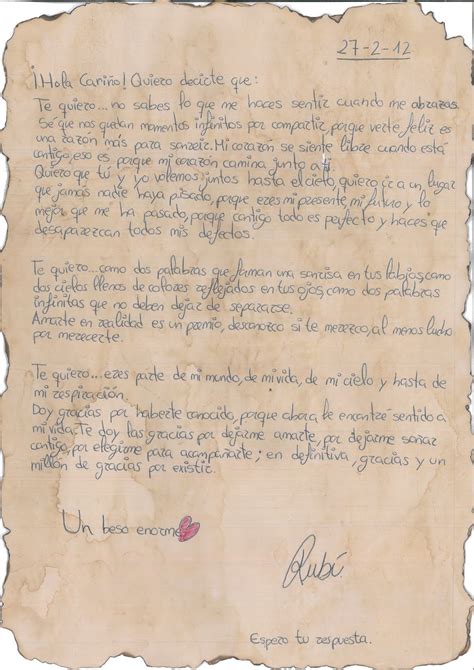 27-2-12
¡Hola Cariño! Quiero decirte que:
Te quiero... no sabes lo que me haces sentir cuando me abrazas.
Sé que nos quedan momentos infinitos por compartir, porque verte feliz es
una razón más para sonreir. Mi corazón se siente libre cuando está
contigo, eso es porque mi corazón camina junto a ti.
Quiero que tú y yo volemos juntos hasta el cielo, quiero ir a un lugar
que jamás nadie haya pisado, porque eres mi presente, mi futuro y lo
mejor que me ha pasado, porque contigo todo es perfecto y haces que
desaparezcan todos mis defectos.
Te quiero... como dos palabras que forman una sonrisa en tus labios, como
dos cielos llenos de colores reflejados en tus ojos, como dos palabras
infinitas que no deben dejar de separarse.
Amarte en realidad es un premio, desconozco si te merezco, al menos lucho
por merecerte.
Te quiero... eres parte de mi mundo, de mi vida, de mi cielo y hasta de
mi respiración.
Doy gracias por haberte conocido, porque ahora le encontré sentido a
mi vida. Te doy las gracias por dejarme amarte, por dejarme soñar
contigo, por elegirme para acompañarte; en definitiva, gracias y un
millón de gracias por existir.
Un beso enorme
Rubí
Espero tu respuesta.